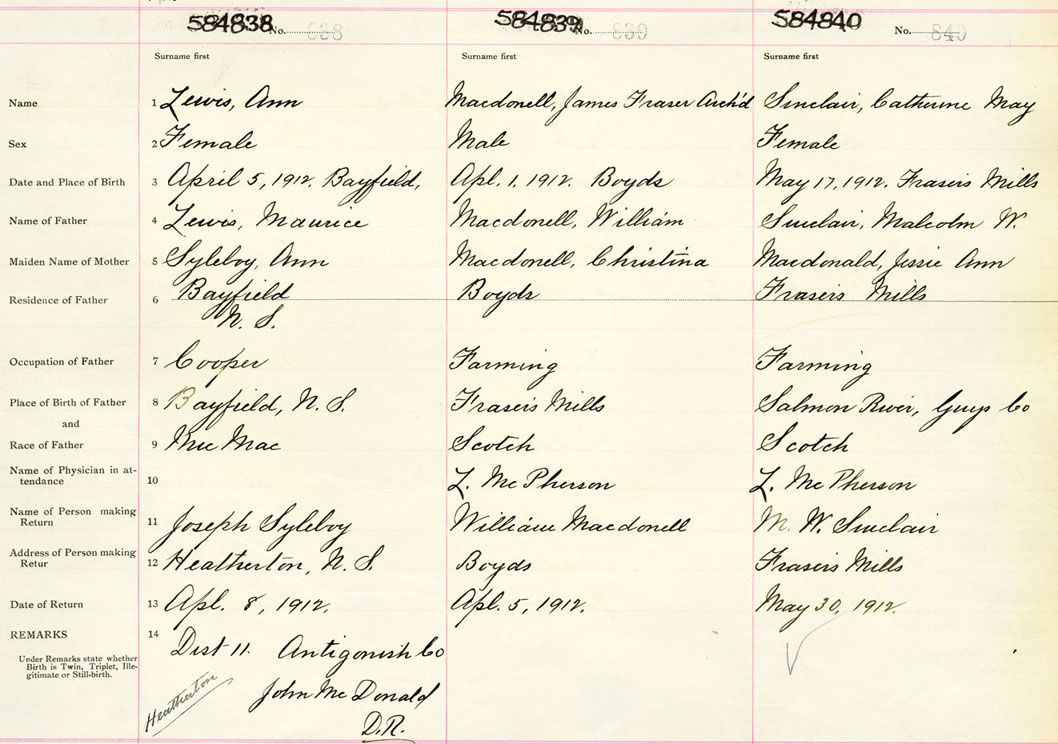 584838 No. 838 584839 No. 839 584840 No. 840
Surname first Surname first Surname first
Name 1 Lewis, Ann Macdonell, James Fraser Arch'd Sinclair, Catherine May
Sex 2 Female Male Female
Date and Place of Birth 3 April 5, 1912. Bayfield, Apl. 1. 1912. Boyds May 17, 1912. Frasers Mills
Name of Father 4 Lewis, Maurice Macdonell, William Sinclair, Malcolm W.
Maiden Name of Mother 5 Syleboy, Ann Macdonell, Christina Macdonald, Jessie Ann
Residence of Father 6 Bayfield Boyds Frasers Mills
N. S.
Occupation of Father 7 Cooper Farming Farming
Place of Birth of Father 8 Bayfield, N. S. Frasers Mills Salmon River, Guys Co
and
Race of Father 9 Mic Mac Scotch Scotch
Name of Physician in at-
tendance 10 L. McPherson L. McPherson
Name of Person making
Return 11 Joseph Syleboy William Macdonell M. W. Sinclair
Address of Person making
Retur 12 Heatherton, N. S. Boyds Frasers Mills
Date of Return 13 Apl. 8, 1912. Apl. 5, 1912. May 30, 1912.
REMARKS 14 Dist 11. Antigonish Co
Under Remarks state whether
Birth is Twin, Triplet, Ille-
gitimate or Still-birth.
Heatherton John McDonald
D.R.